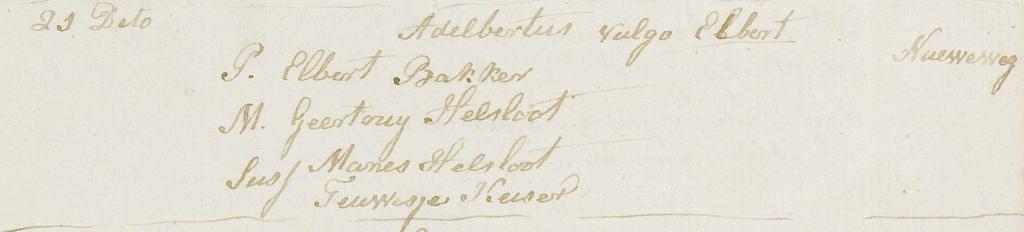 21 Dito Adelbertus vulgo Elbert Nueweweg
P. Elbert Bakker
M. Geertruy Helsloot
Susj Manes Helsloot
Teuwesje Keiser